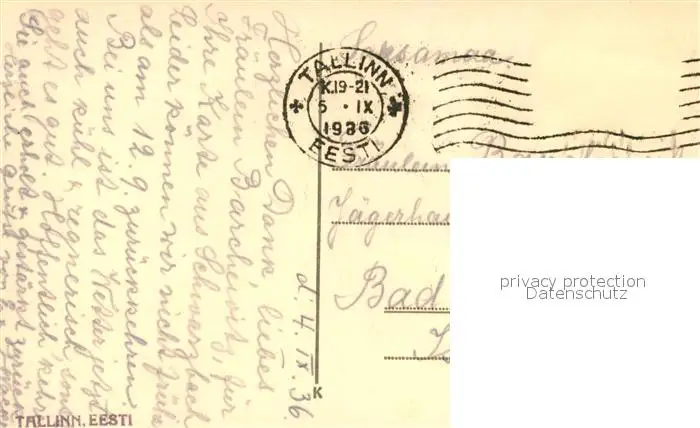 d. 4. IX. 36.
Herzlichen Dank, liebes
Fräulein Barchewitz, für
Ihre Karte aus Schwarzbach
Leider können wir nicht früher
als am 12. 9. zurückkehren.
Bei uns ist das Wetter jetzt
auch kühl & regnerisch, sonst
geht es gut. Hoffentlich kehren
Sie auch erholt & gestärkt zurück
Herzliche Grüsse von
TALLINN, EESTI
K
TALLINN
K.19-21
5 · IX
1936
EESTI
Saksamaa
Fräulein
Jägerhau
Bad
privacy protection
Datenschutz